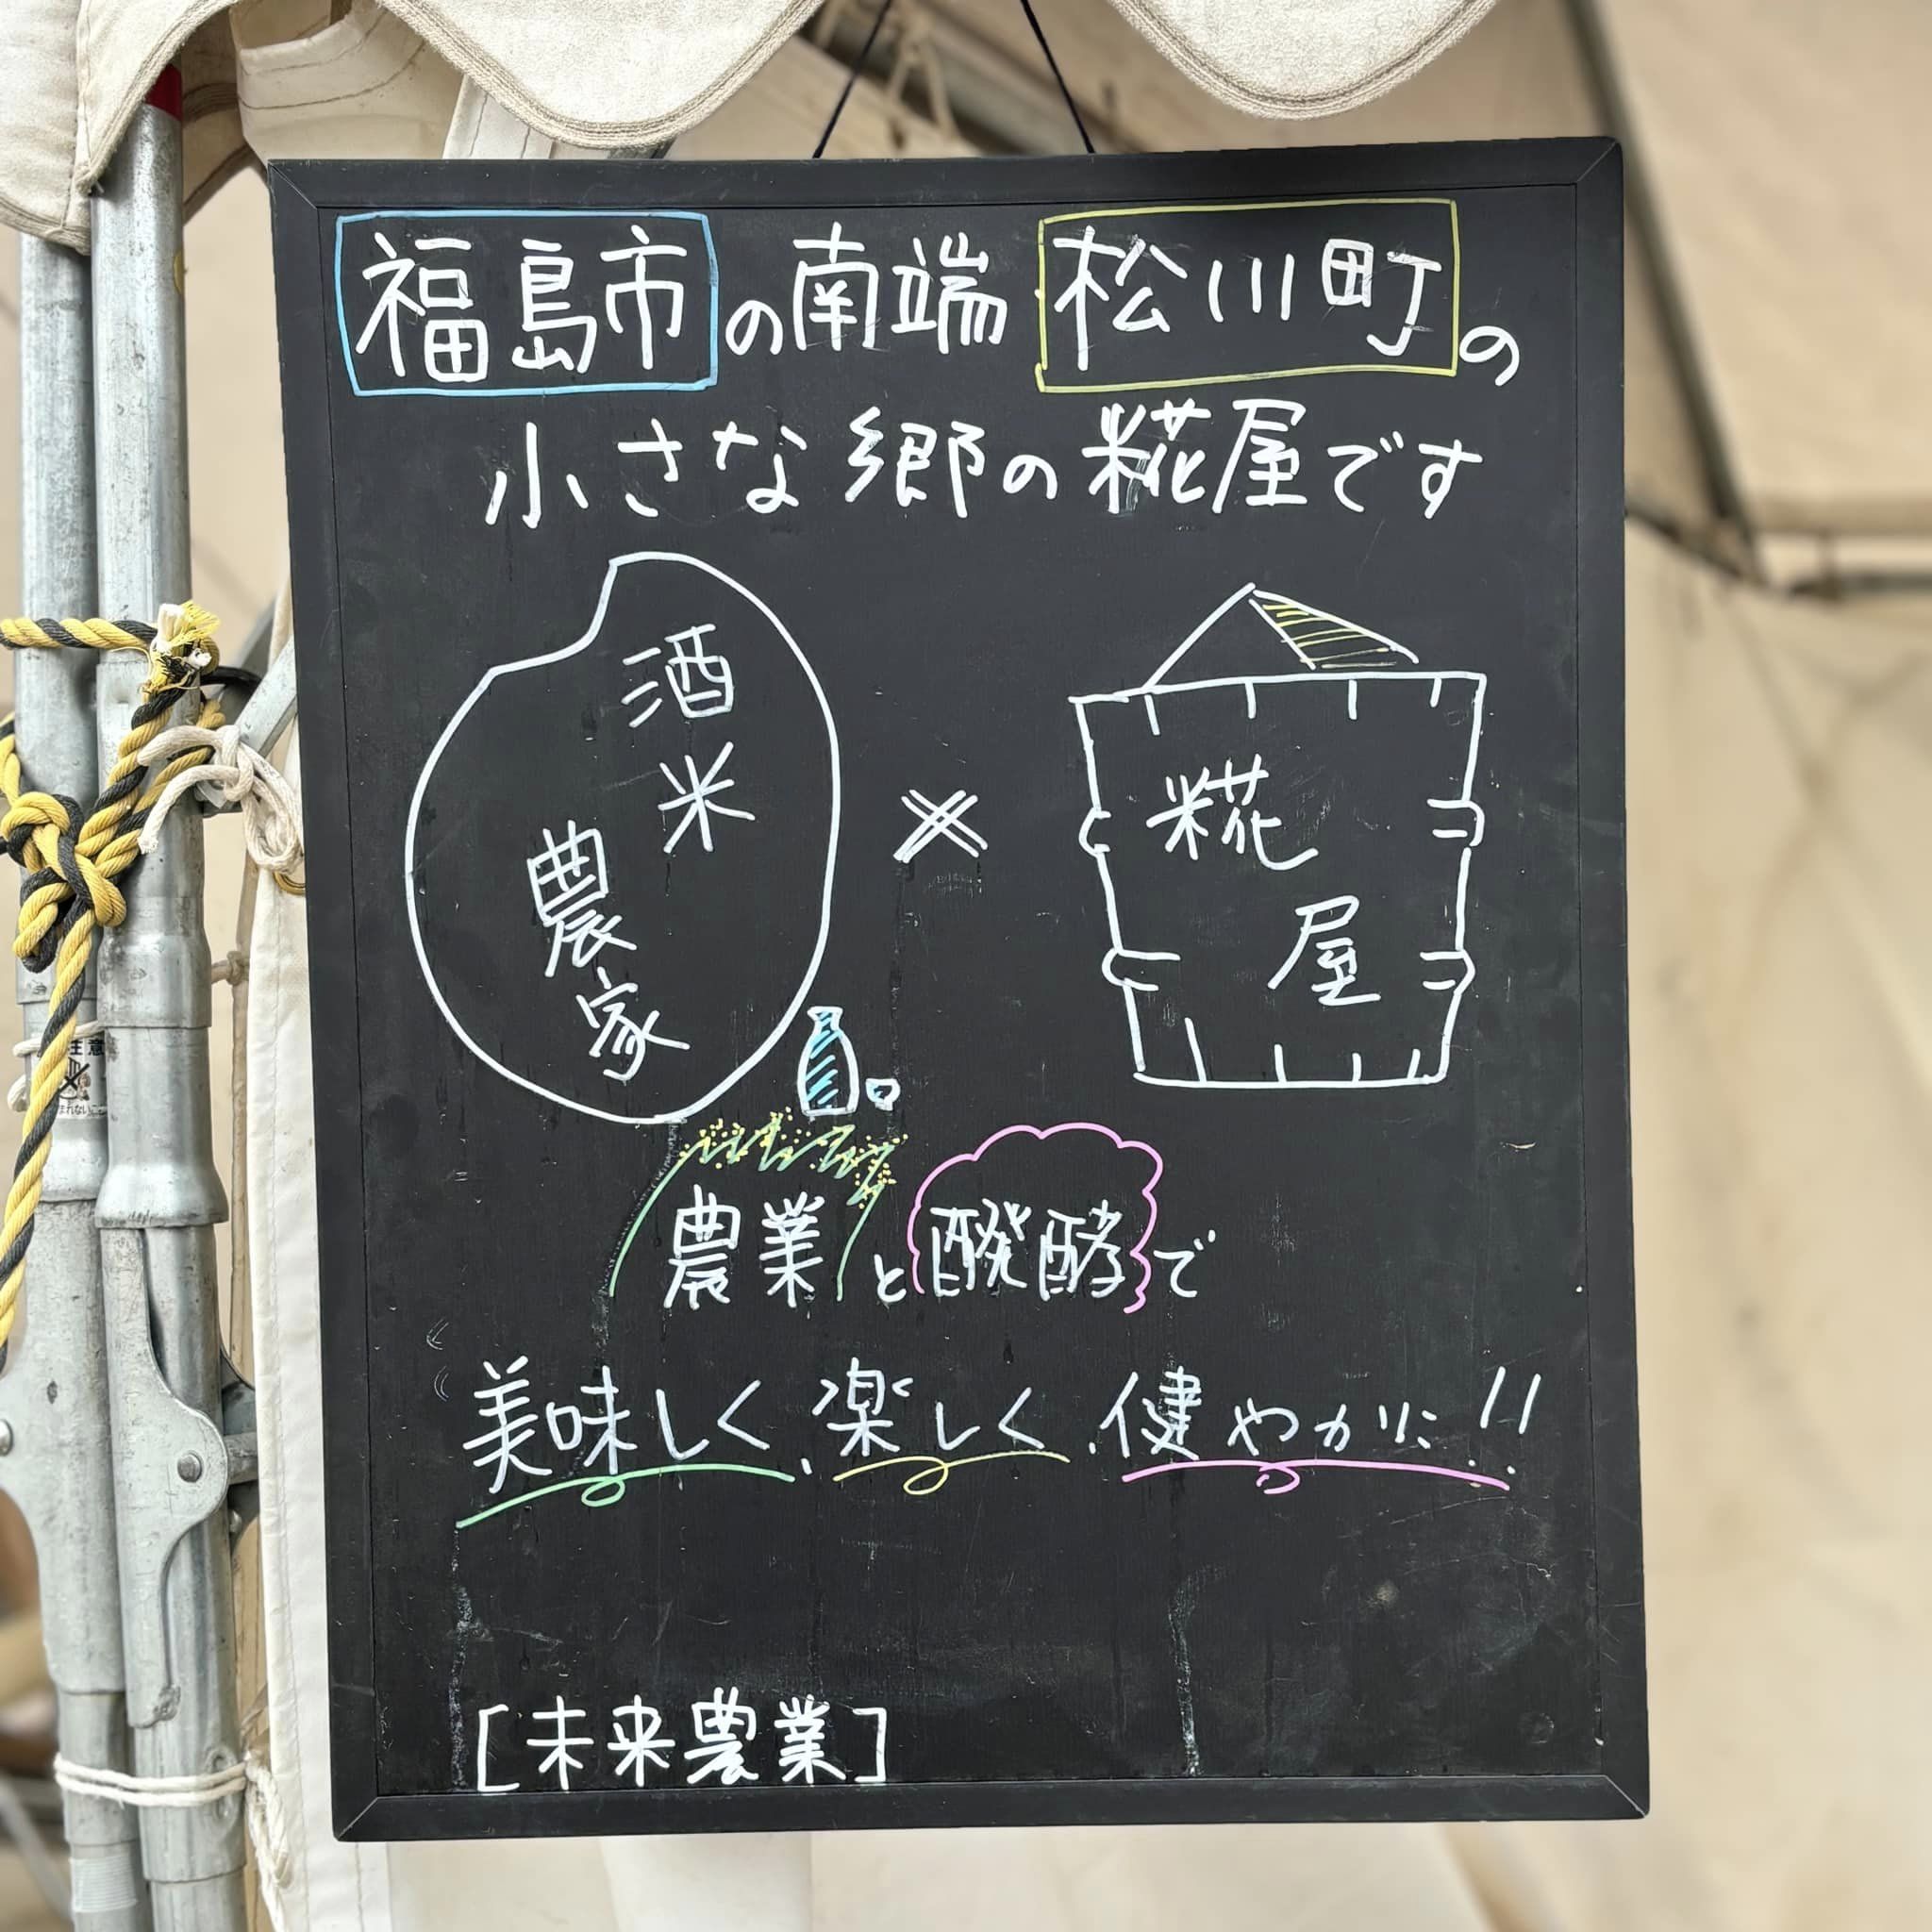 福島市の南端 松川町の
小さな郷の糀屋です
酒米
農家
×
糀
屋
農業と醗酵で
美味しく、楽しく、健やかに!!
[未来農業]
注意